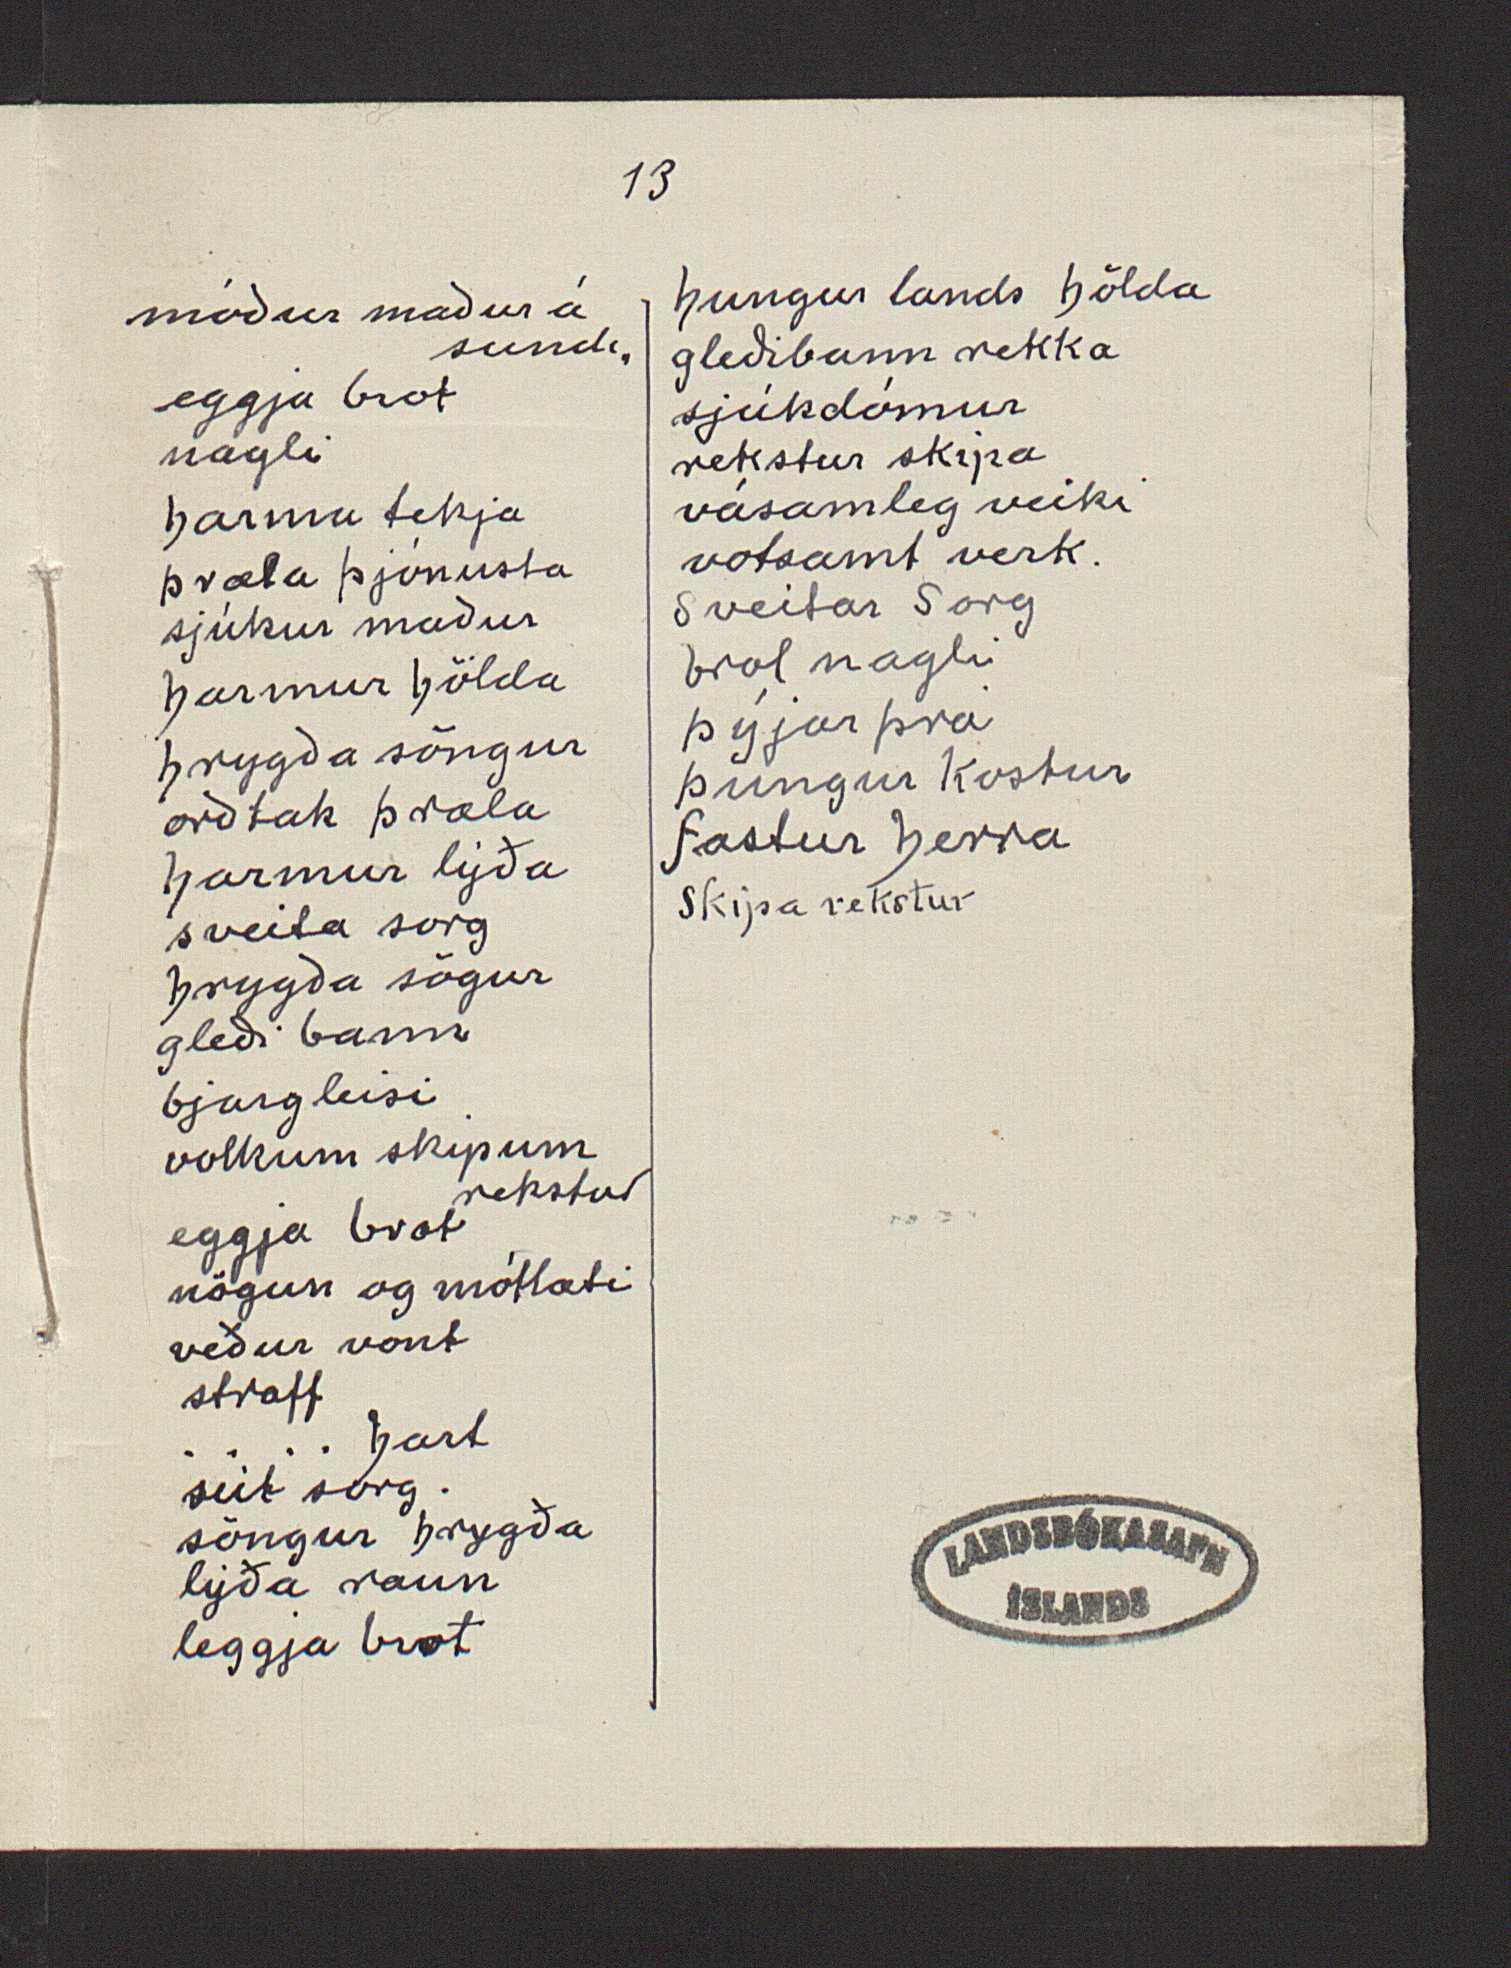 13
móður maður á
sundi.
eggja brot
nagli
harma tekja
þræla þjónusta
sjúkur maður
harmur hölda
hrygða söngur
orðtak þræla
harmur lýða
sveita sorg
hrygða sögur
gleði bann
bjargleisi
volkum skipum
rekstur
eggja brot
nögun og mótlæti
veður vont
straff
. . . . hart
sút sorg.
söngur hrygða
lýða raun
leggja brot
hungur lands hölda
gleðibann rekka
sjúkdómur
rekstur skipa
vásamleg veiki
votsamt verk.
Sveitar Sorg
brot nagli
þýjar þrá
þungur Kostur
fastur herra
Skipa rekstur
LANDSBÓKASAFN
ÍSLANDS